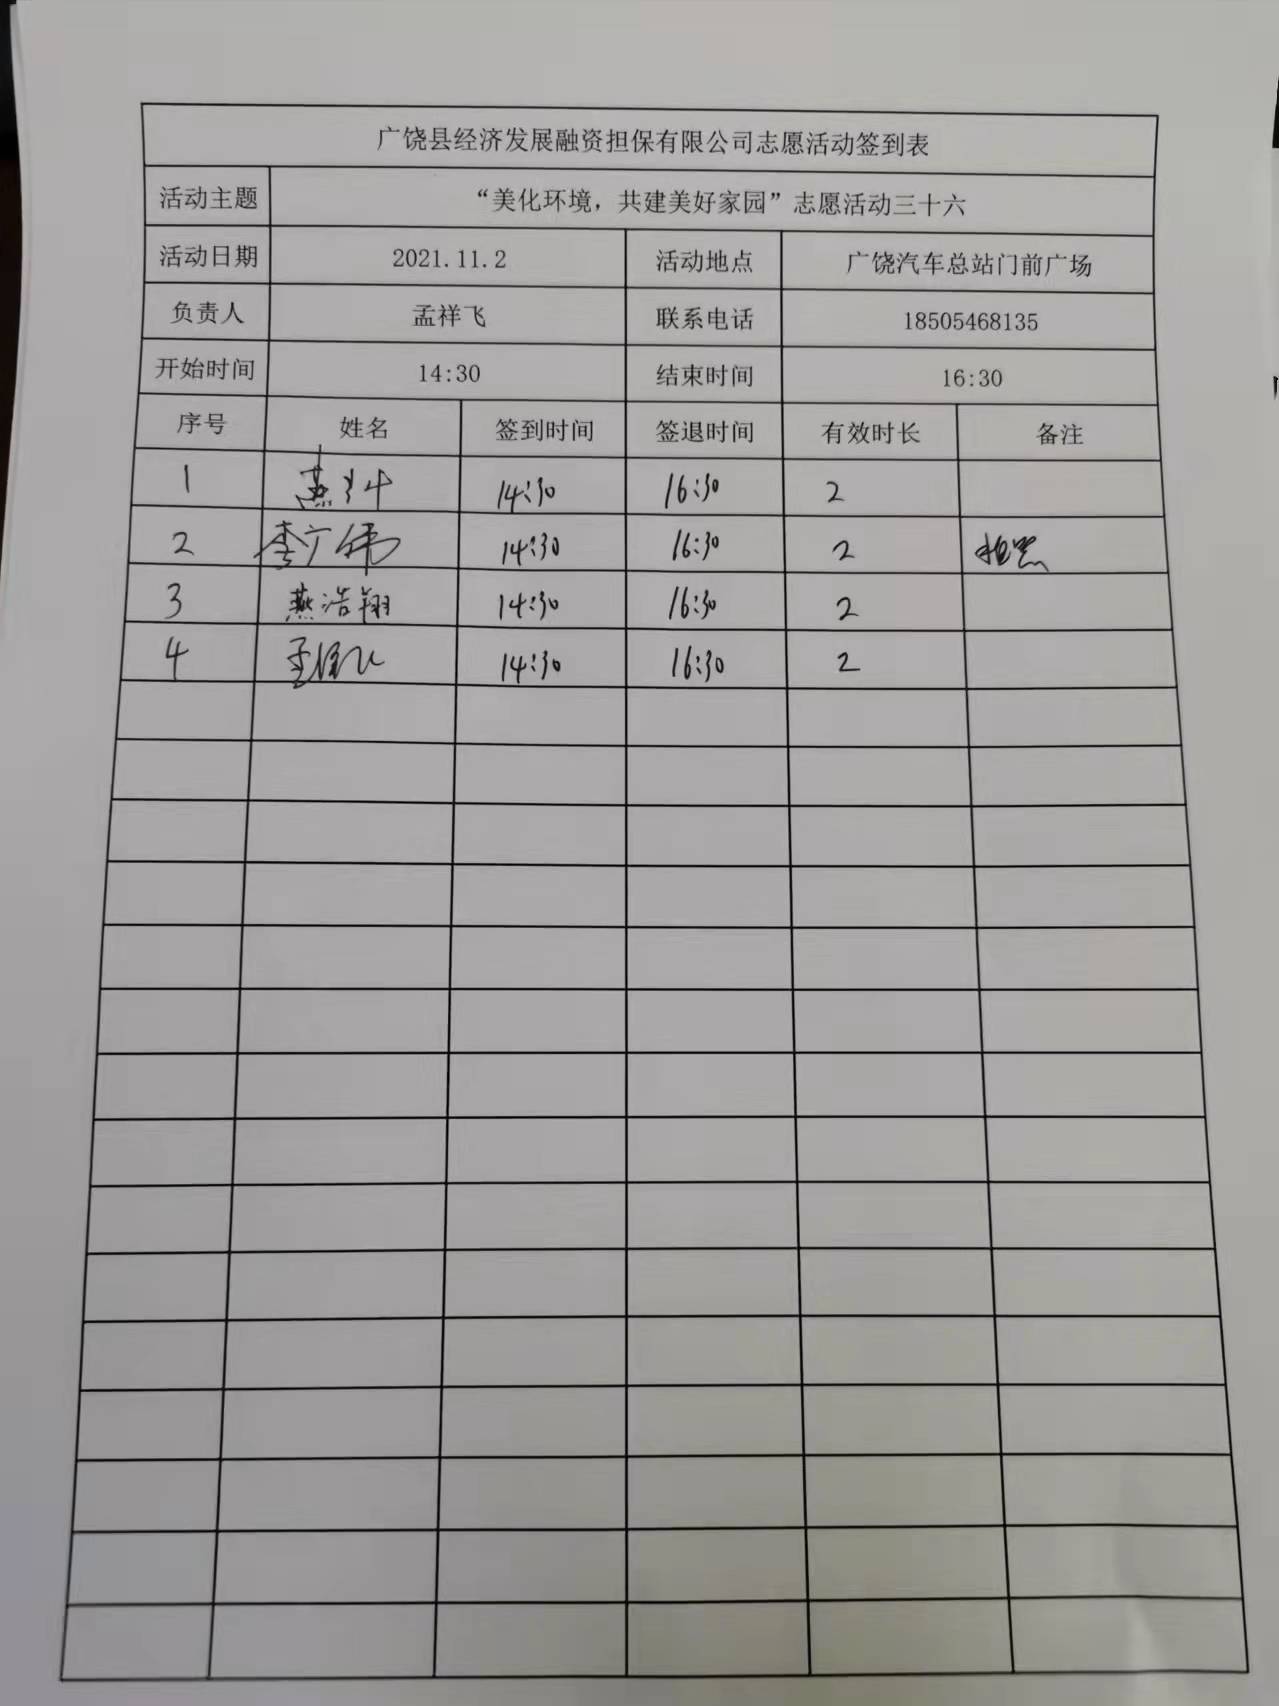 广饶县经济发展融资担保有限公司志愿活动签到表
活动主题 “美化环境，共建美好家园”志愿活动三十六
活动日期 2021.11.2 活动地点 广饶汽车总站门前广场
负责人 孟祥飞 联系电话 18505468135
开始时间 14:30 结束时间 16:30
序号 姓名 签到时间 签退时间 有效时长 备注
1 14:30 16:30 2
2 李广伟 14:30 16:30 2
3 燕浩翔 14:30 16:30 2
4 14:30 16:30 2